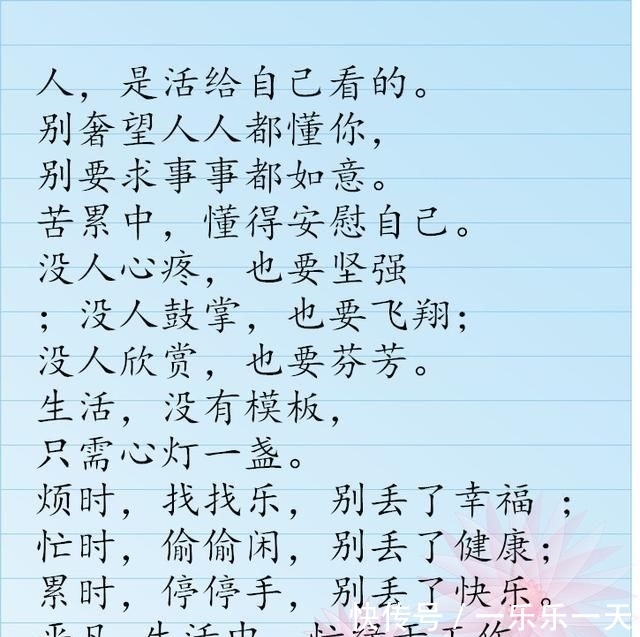 人，是活给自己看的。
别奢望人人都懂你，
别要求事事都如意。
苦累中，懂得安慰自己。
没人心疼，也要坚强
；没人鼓掌，也要飞翔；
没人欣赏，也要芬芳。
生活，没有模板，
只需心灯一盏。
烦时，找找乐，别丢了幸福 ；
忙时，偷偷闲，别丢了健康；
累时，停停手，别丢了快乐。
快传号 / 一乐乐一天